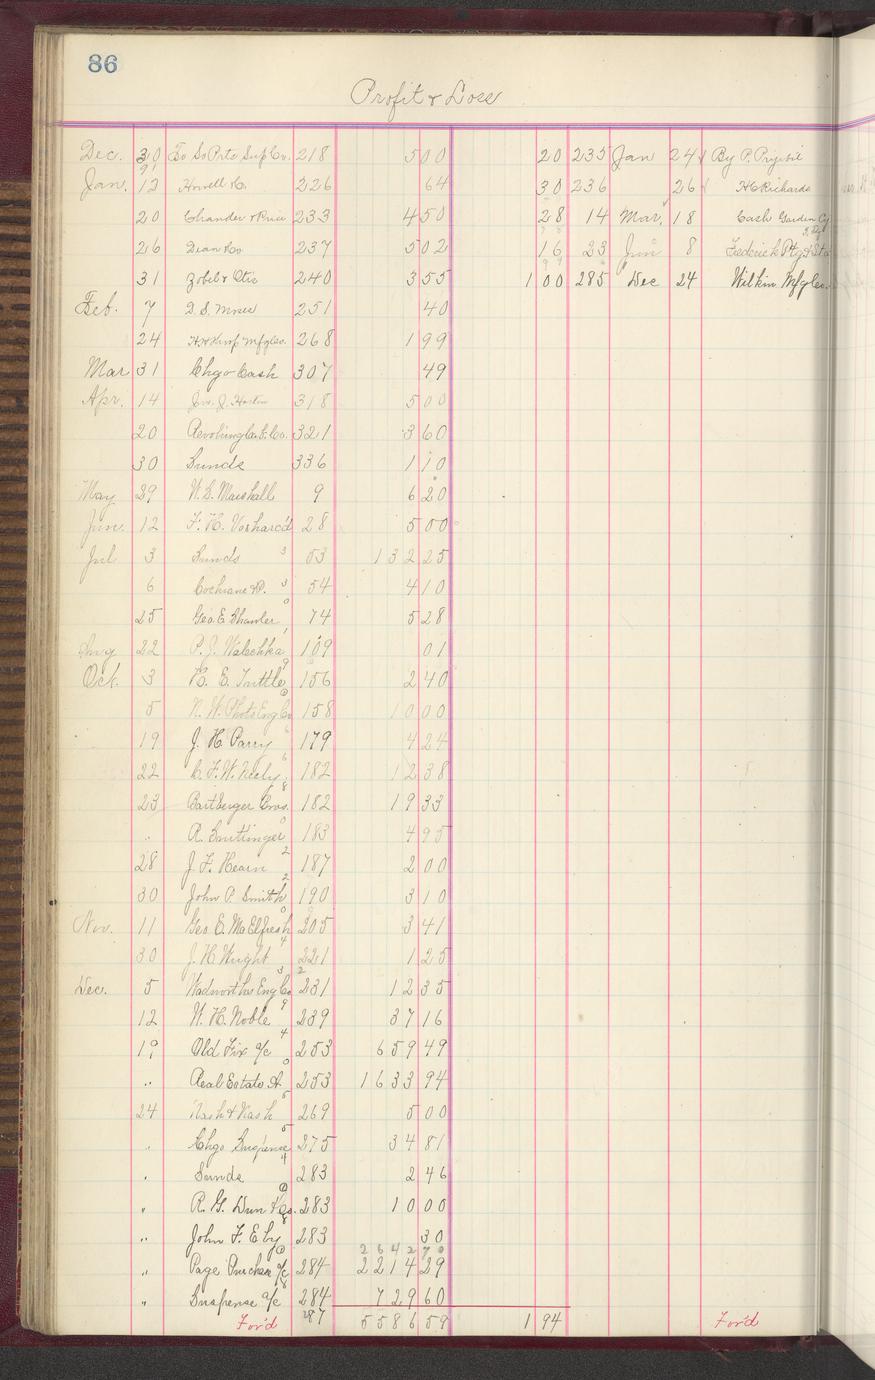 86
Profit & Loss
Dec. 30 To So Prte Sup Co. 218 5 00 20 235 Jan 24 By P.
91
Jan. 12 Howell & Co. 226 64 30 236 26 H C Richards
20 Chander & Price 233 4 50 28 14 Mar. 18 Cash Garden Cy
26 Dean & Co 237 5 02 16 23 Jun 8 Frederick Ptg & Sta
31 Zobel & Otis 240 3 55 1 00 285 Dec 24 Wilkin Mfg Co.
Feb. 7 D. S. Moses 251 40
24 Mfg Co. 268 1 99
Mar 31 Chgo Cash 307 49
Apr. 14 Jno. J. 318 5 00
20 321 3 60
30 Sunds 336 1 10
May 29 W. S. Marshall 9 6 20
Jun. 12 F. H. 28 5 00
Jul 3 Sunds 3 53 132 25
6 Cochrane & P. 3 54 4 10
25 Geo. E. Shamler 0 74 5 28
Aug 22 P. J. Walechka 1 109 01
Oct. 3 H. E. Tuttle 9 156 2 40
5 N. W. Photo Eng Co 0 158 10 00
19 J. H. Parry 6 179 4 24
22 C. F. W. Neely 6 182 12 38
23 Bartberger Bros. 8 182 19 33
" R. Smittinger 0 183 4 95
28 J. F. Hearn 2 187 2 00
30 John P. Smith 2 190 3 10
Nov. 11 Geo. E. McElfresh 0 205 3 41
30 J. H. Wright 4 221 1 25
Dec. 5 Wadworths Eng Co 3 231 12 35
12 W. H. Noble 9 239 37 16
19 Old Fix a/c 4 253 659 49
" Real Estate A. 0 253 1633 94
24 Nash & Nash 5 269 5 00
" Chgo Suspense 5 275 34 81
" Sunds 4 283 2 46
" R. G. Dun & Co. 0 283 10 00
" John F. Eby 8 283 30
2642 70
" Page Purchase a/c 0 284 2214 29
" Suspense a/c 8 284 729 60
For'd 287 5586 59 1 94 For'd